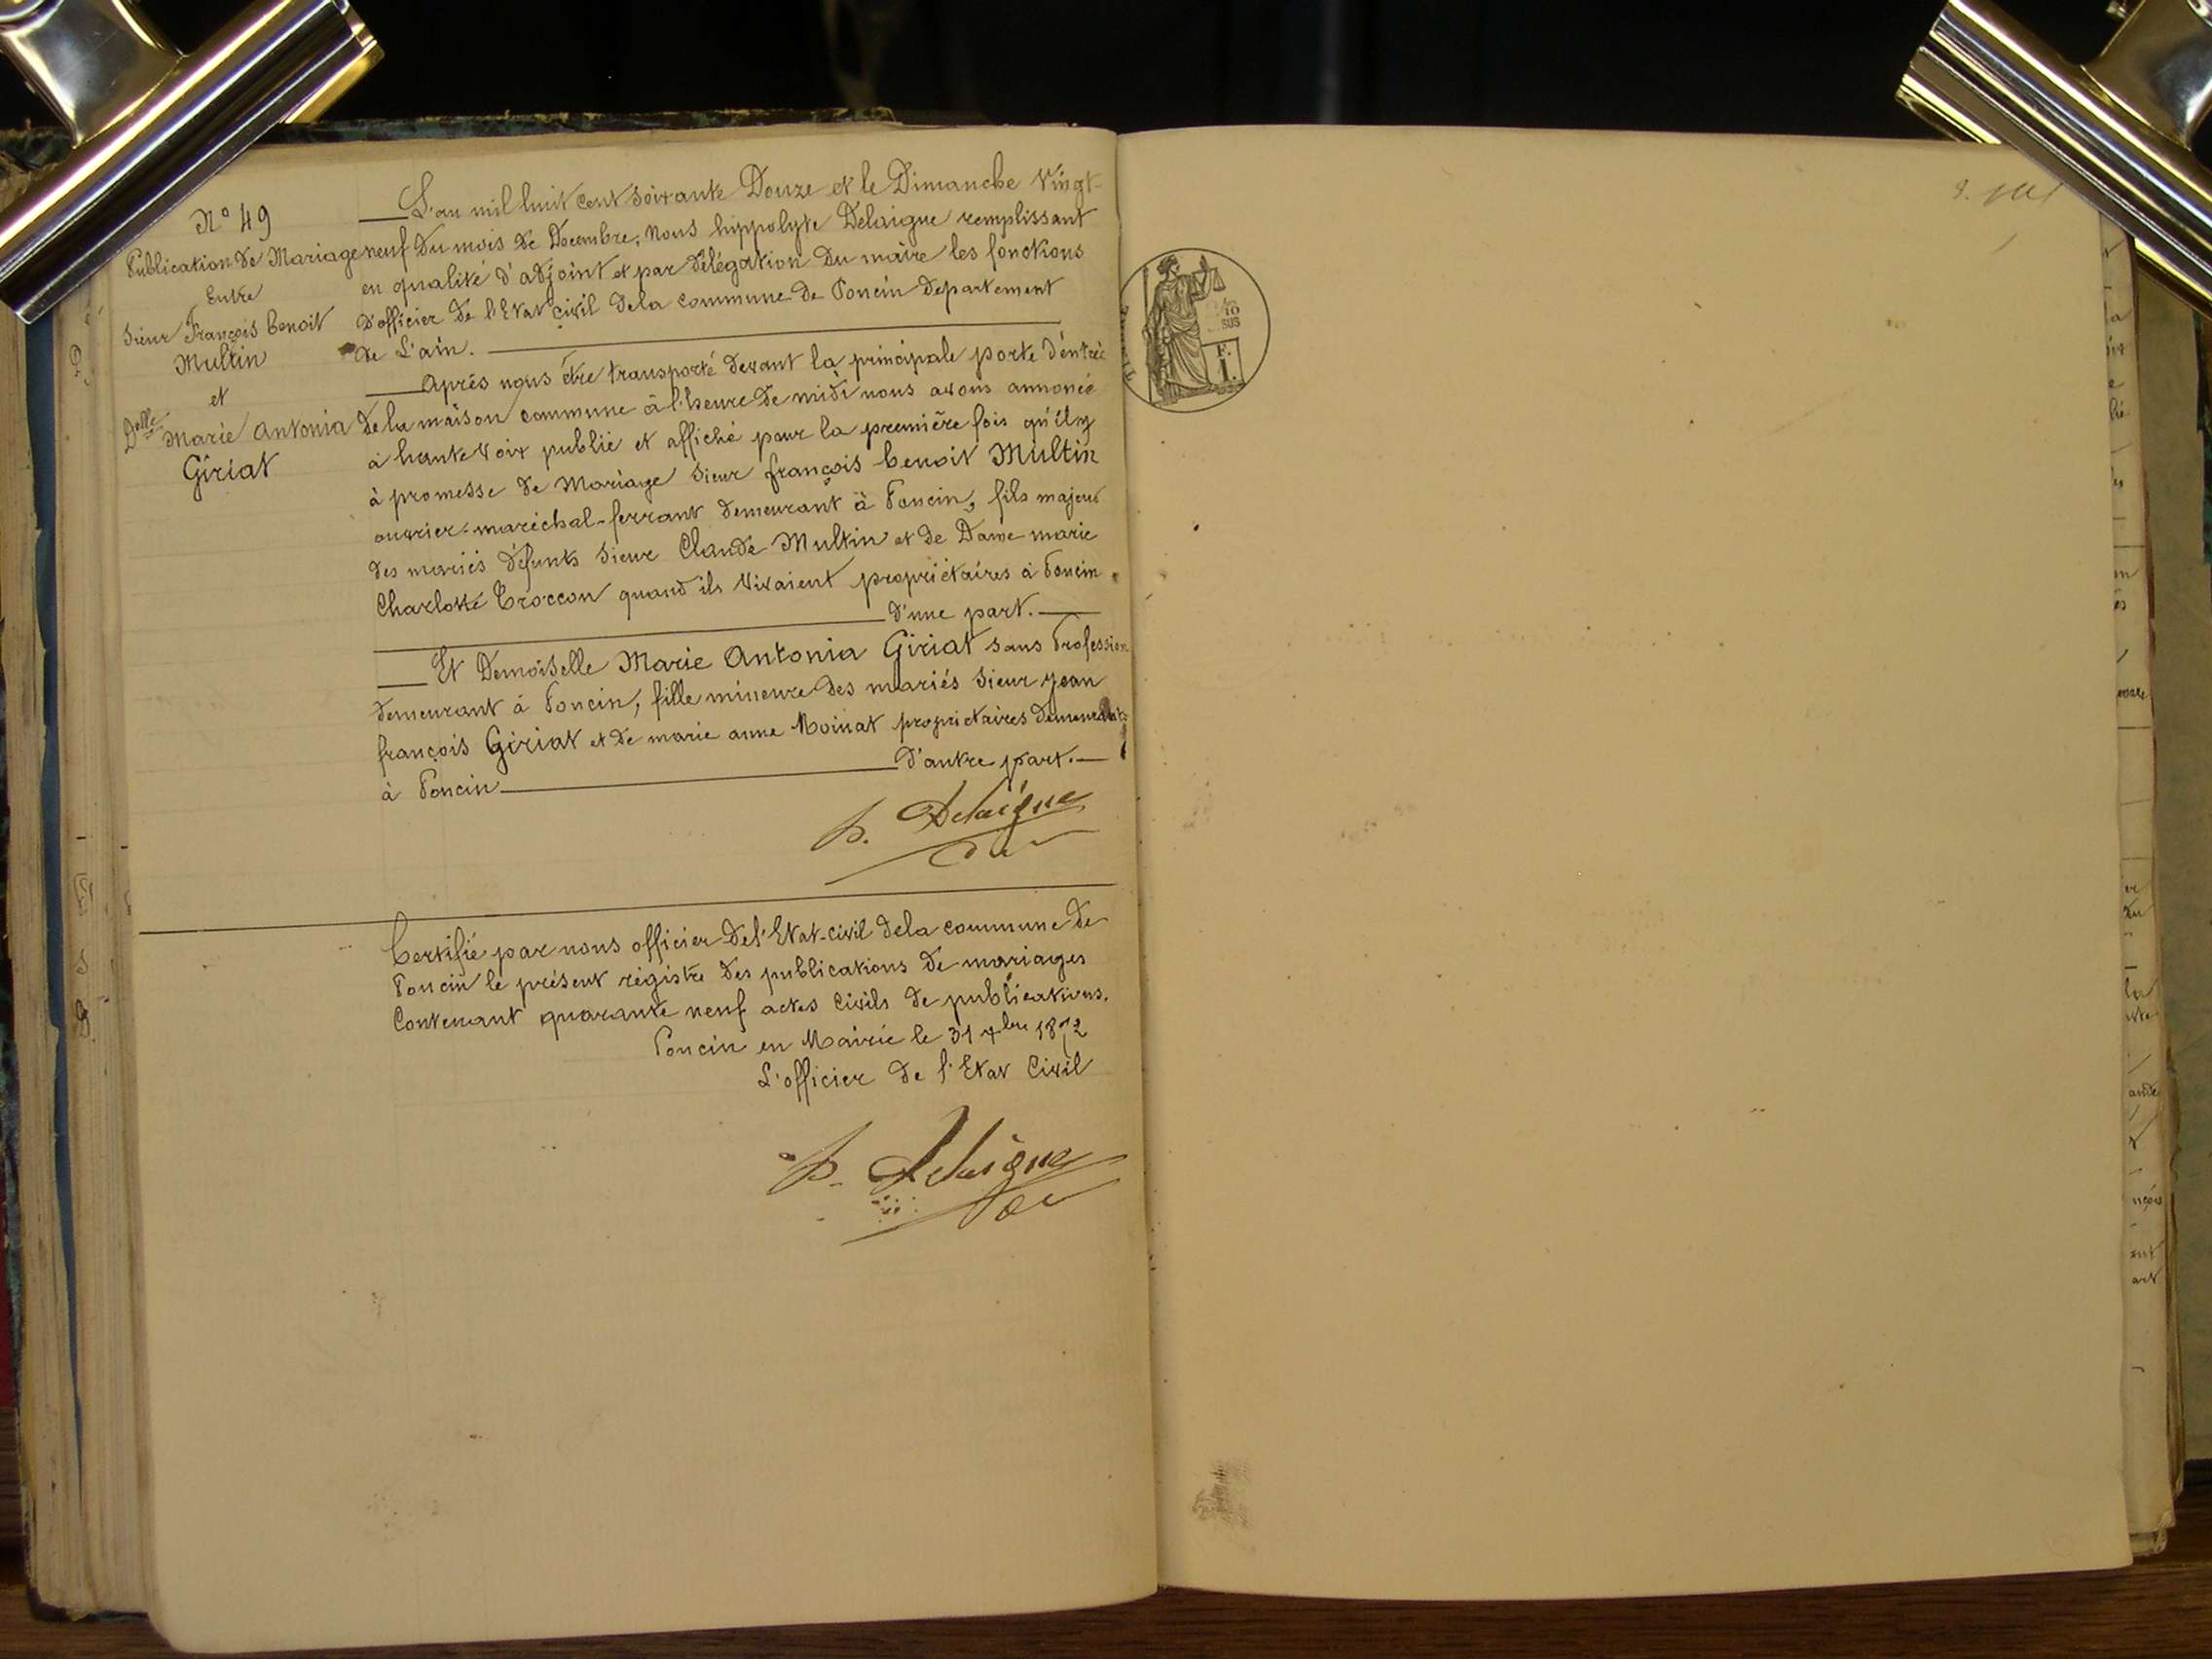 N° 49
Publication de Mariage
Entre
Sieur François benoit
Multin
et
Delle Marie Antonia
Giriat
L'an mil huit cent soixante Douze et le Dimanche Vingt-
neuf du mois de Décembre, Nous hippolyte Delaigue remplissant
en qualité d'adjoint et par délégation du maire les fonctions
d'officier de l'Etat civil de la commune de Poncin departement
de L'ain.
Après nous être transporté devant la principale porte d'entrée
de la maison commune à l'heure de midi nous avons annoncé
à haute voix publié et affiché pour la première fois qu'il y
à promesse de Mariage Sieur françois benoit Multin
ouvrier-maréchal-ferrant demeurant à Poncin, fils majeur
des mariés défunts Sieur Claude Multin et de Dame marie
Charlotte Croccon quand ils vivaient propriétaires à Poncin
d'une part.
Et Demoiselle Marie Antonia Giriat sans Profession
demeurant à Poncin, fille mineure des mariés Sieur jean
françois Giriat et de marie anne Moinat propriétaires demeurant
à Poncin d'autre part.
h. Delaigue
Certifié par nous officier de l'Etat-civil de la commune de
Poncin le présent régistre des publications de mariages
Contenant quarante neuf actes Civils de publications.
Poncin en Mairie le 31 xbre 1872
L'officier de l'Etat Civil
h. Delaigue
10
SUS
F.
1.